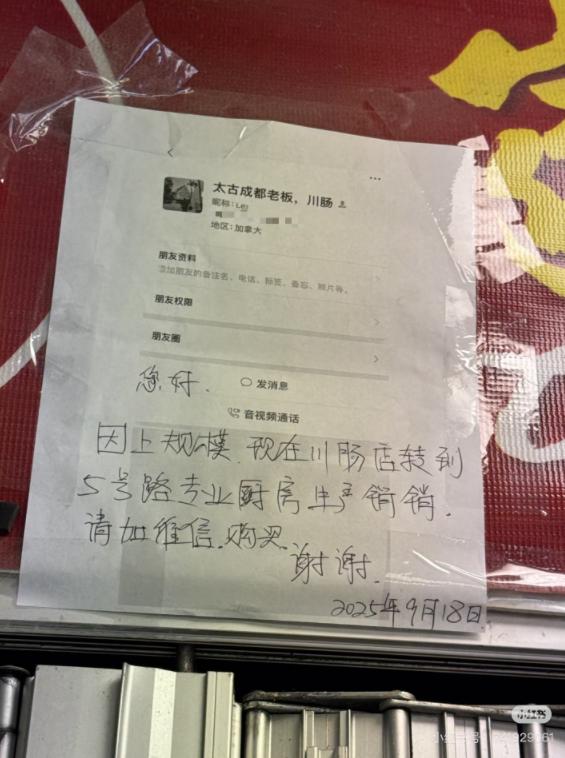 太古成都老板，川肠
昵称：Lei
地区：加拿大
朋友资料
添加朋友的备注名、电话、标签、备忘、照片等。
朋友权限
朋友圈
您好.
发消息
音视频通话
因上规模.现在川肠店转到
5号路专业厨房生产销销.
请加维信.购买.
谢谢.
2025年9月18日
小红书